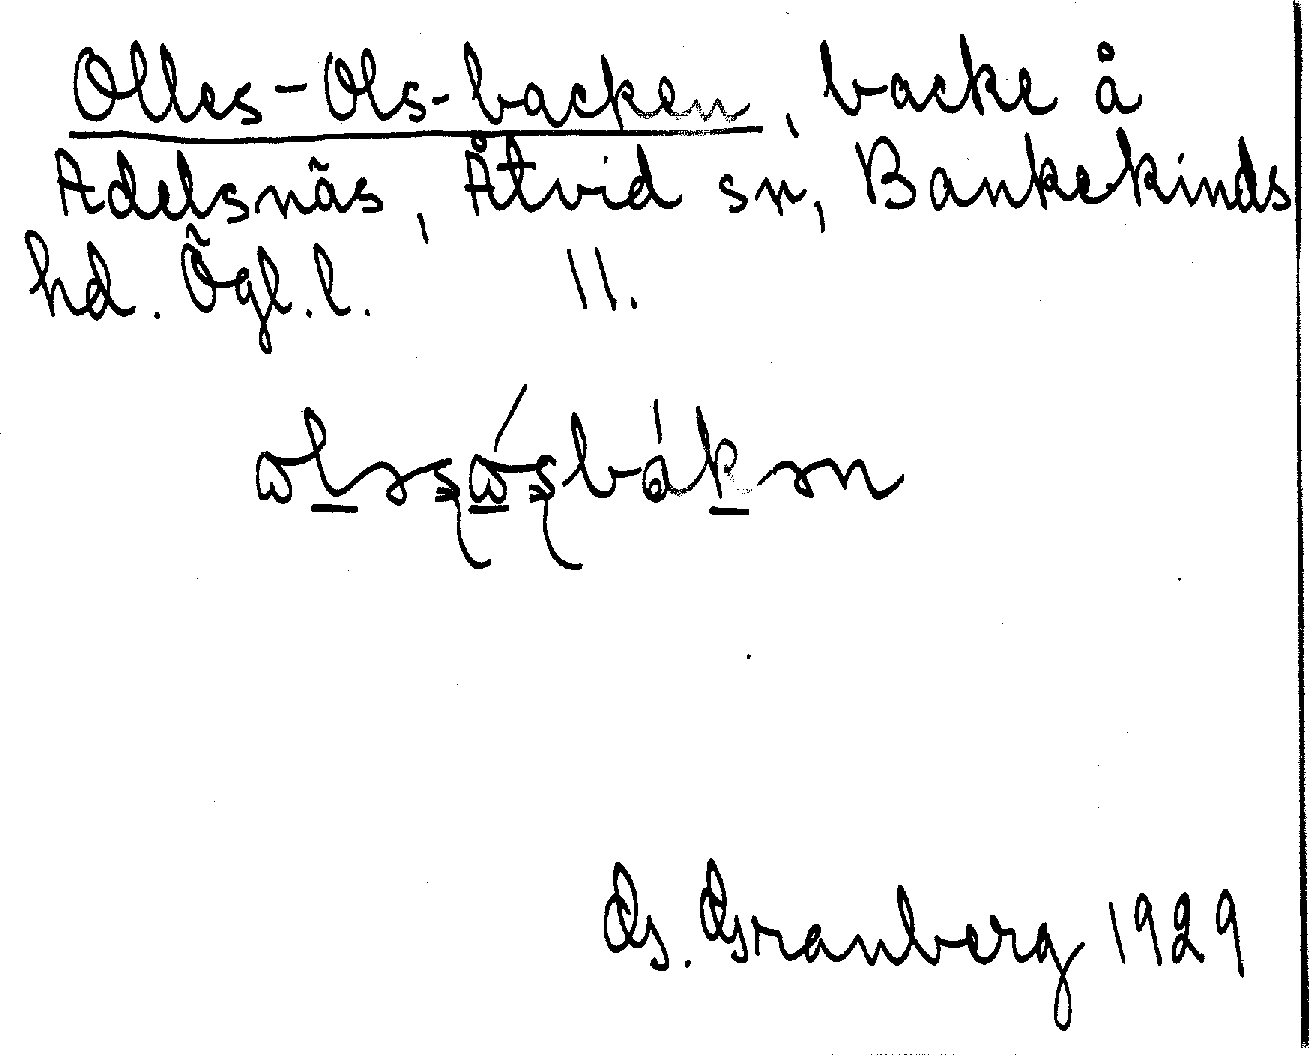 Olles-Ols-backen, backe å
Adelsnäs, Åtvid sn, Bankekinds
hd. Ögl. l. 11.
G. Granberg 1929